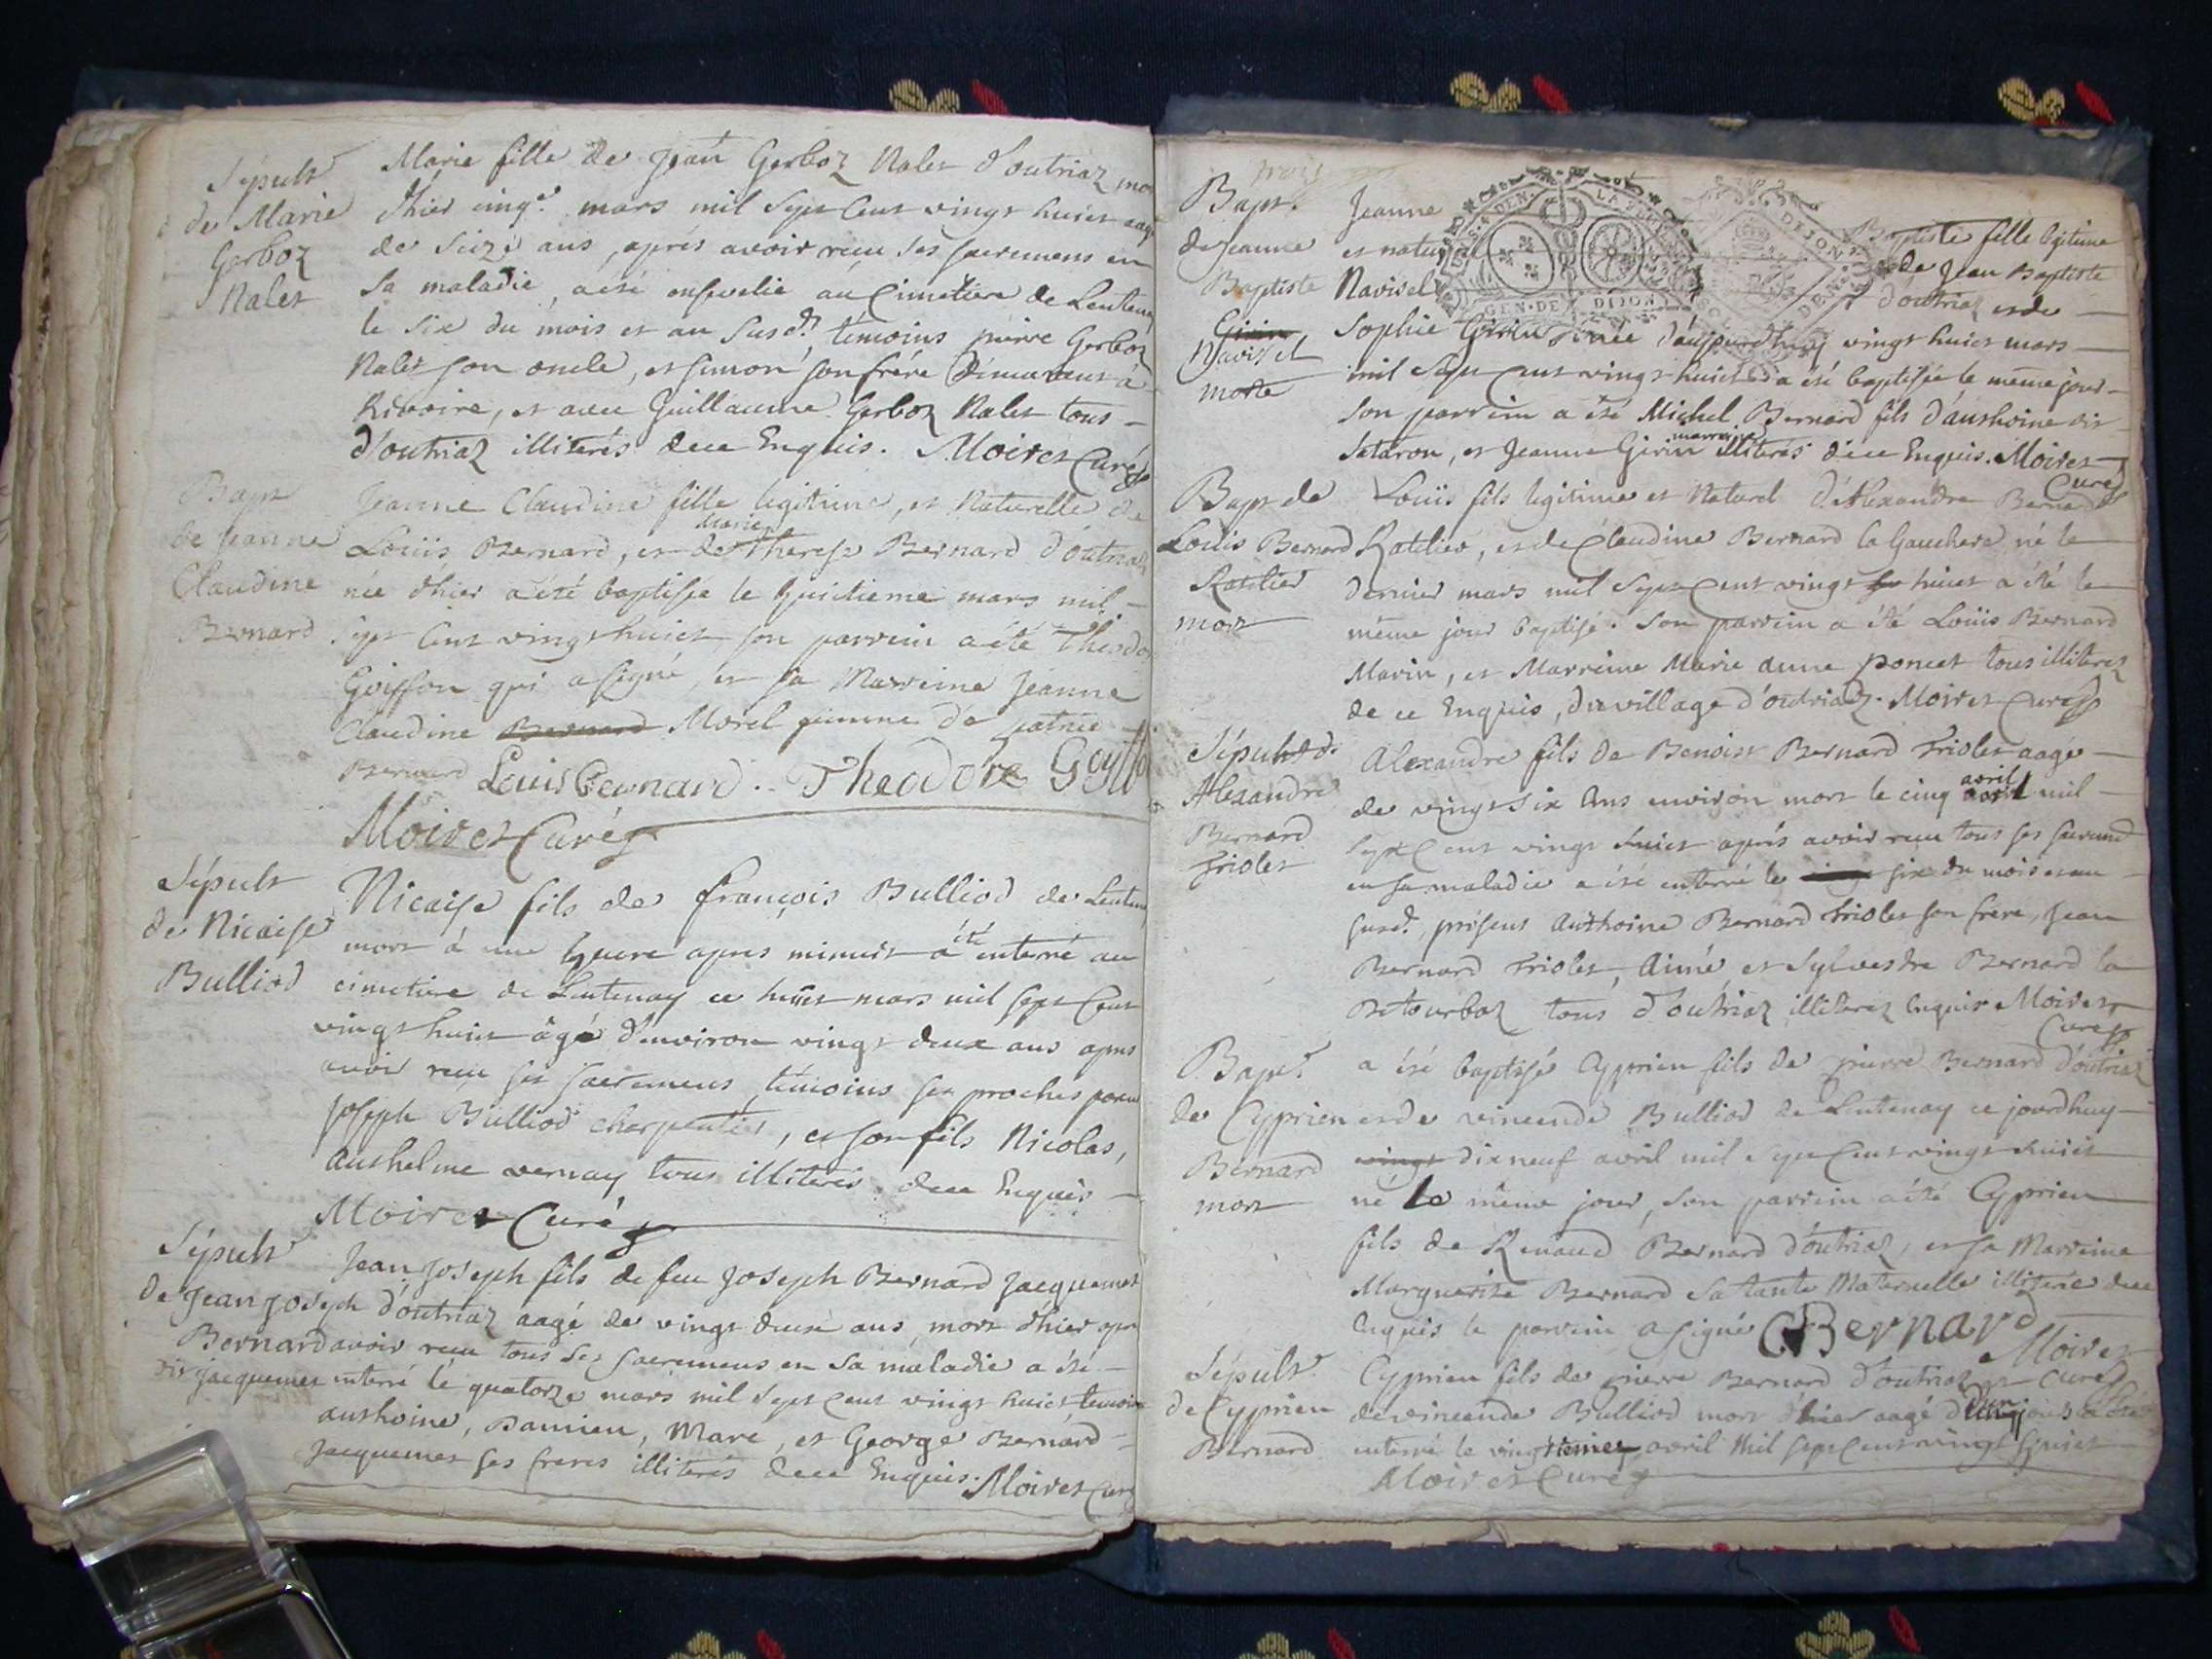 Sépult
de Marie
Gerboz
Nalet
Marie fille de Jean Gerboz Nalet d'outriaz
d'hier cinqe mars mil sept cent vingt huict
de seize ans, aprés avoir reçu ses sacremens en
sa maladie, a été ensevelie au cimetière de
le six du mois et an susd. témoins pierre Gerboz
Nalet son oncle, et simon son frére demeurant à
Rivoire, et avec Guillaume Gerboz Nalet tous
d'outriaz illiterés de ce Enquis. Moiret Curé
Bapt
de jeanne
Claudine
Bernard
Jeanne Claudine fille legitime, et Naturelle de
Marie
Loüis Bernard, et de therese Bernard
née d'hier a été baptisée le huictieme mars mil
sept cent vingt huict son parrein a été
Goiffon qui a signé, et sa Marreine Jeanne
Claudine Bernard Morel femme de patrice
Bernard Louis Bernard. Theodore
Moiret Curé
Sépult
de Nicaise
Bulliod
Nicaise fils de françois Bulliod de
été
mort à une heure apres minuit a enterré au
cimetiere de Lentenay ce huict mars mil sept cent
vingt huict âgé d'environ vingt deux ans apres
avoir reçu ses sacremens, témoins ses proches
joseph Bulliod charpentier, et son fils Nicolas,
Anthelme vernay tous illiterés de ce Enquis
Moiret Curé
Sépult
de Jean joseph
Bernard
dit jacquemet
Jean joseph fils de feu joseph Bernard jacquemet
d'outriaz aagé de vingt deux ans, mort d'hier
avoir reçu tous ses sacremens en sa maladie a été
enterré le quatorze mars mil sept cent vingt huict
anthoine, Damien, Marc, et George Bernard
jacquemet ses freres illiterés de ce Enquis. Moiret
Bapt.
de Jeanne
Baptiste
Girin
Navisel
morte
Jeanne Baptiste fille legitime
et de Jean Baptiste
Navisel d'outriaz et de
Sophie Girin née d'aujourdhuy vingt huict mars
mil sept cent vingt huict a été baptisée le même jour
son parrein a été Michel Bernard fils d'anthoine dit
marreine
et Jeanne Girin illiterés de ce Enquis. Moiret
Curé
Bapt de
Loüis Bernard
Ratelier
mort
Loüis fils legitime et Naturel d'Alexandre Bernard
Ratelier, et de Claudine Bernard la Gauchere né le
dernier mars mil sept cent vingt huict a été le
même jour baptisé. Son parrein a été Loüis Bernard
Marin, et Marreine Marie Anne poncet tous illiterez
de ce Enquis, du village d'outriaz. Moiret Curé
Sépult d.
Alexandre
Bernard
Friolet
Alexandre fils de Benoist Bernard Friolet aagé
avril
de vingt six Ans environ mort le cinq avril mil
sept cent vingt huict aprés avoir reçu tous ses
en sa maladie a été enterré le six du mois et an
susd., présens Anthoine Bernard Friolet son frere, Jean
Bernard Friolet, Aimé et Sylvestre Bernard la
Betourbaz tous d'outriaz illiterez Enquis Moiret
Curé
Bapt.
de Cyprien
Bernard
mort
a été baptisé Cyprien fils de pierre Bernard d'outriaz
et de vincende Bulliod de Lentenay ce jourdhuy
vingt dix neuf avril mil sept cent vingt huict
né le même jour, son parrein a été Cyprien
fils de Renaud Bernard d'outriaz, et sa Marreine
Marguerite Bernard sa tante Maternelle illiterée de ce
Enquis le parrein a signé CBernard
Moiret
Curé
Sépult.
de Cyprien
Bernard
Cyprien fils de pierre Bernard d'outriaz
de vincende Bulliod mort d'hier aagé d'un jour a été
enterré le vingtieme avril Mil sept cent vingt huict
Moiret Curé